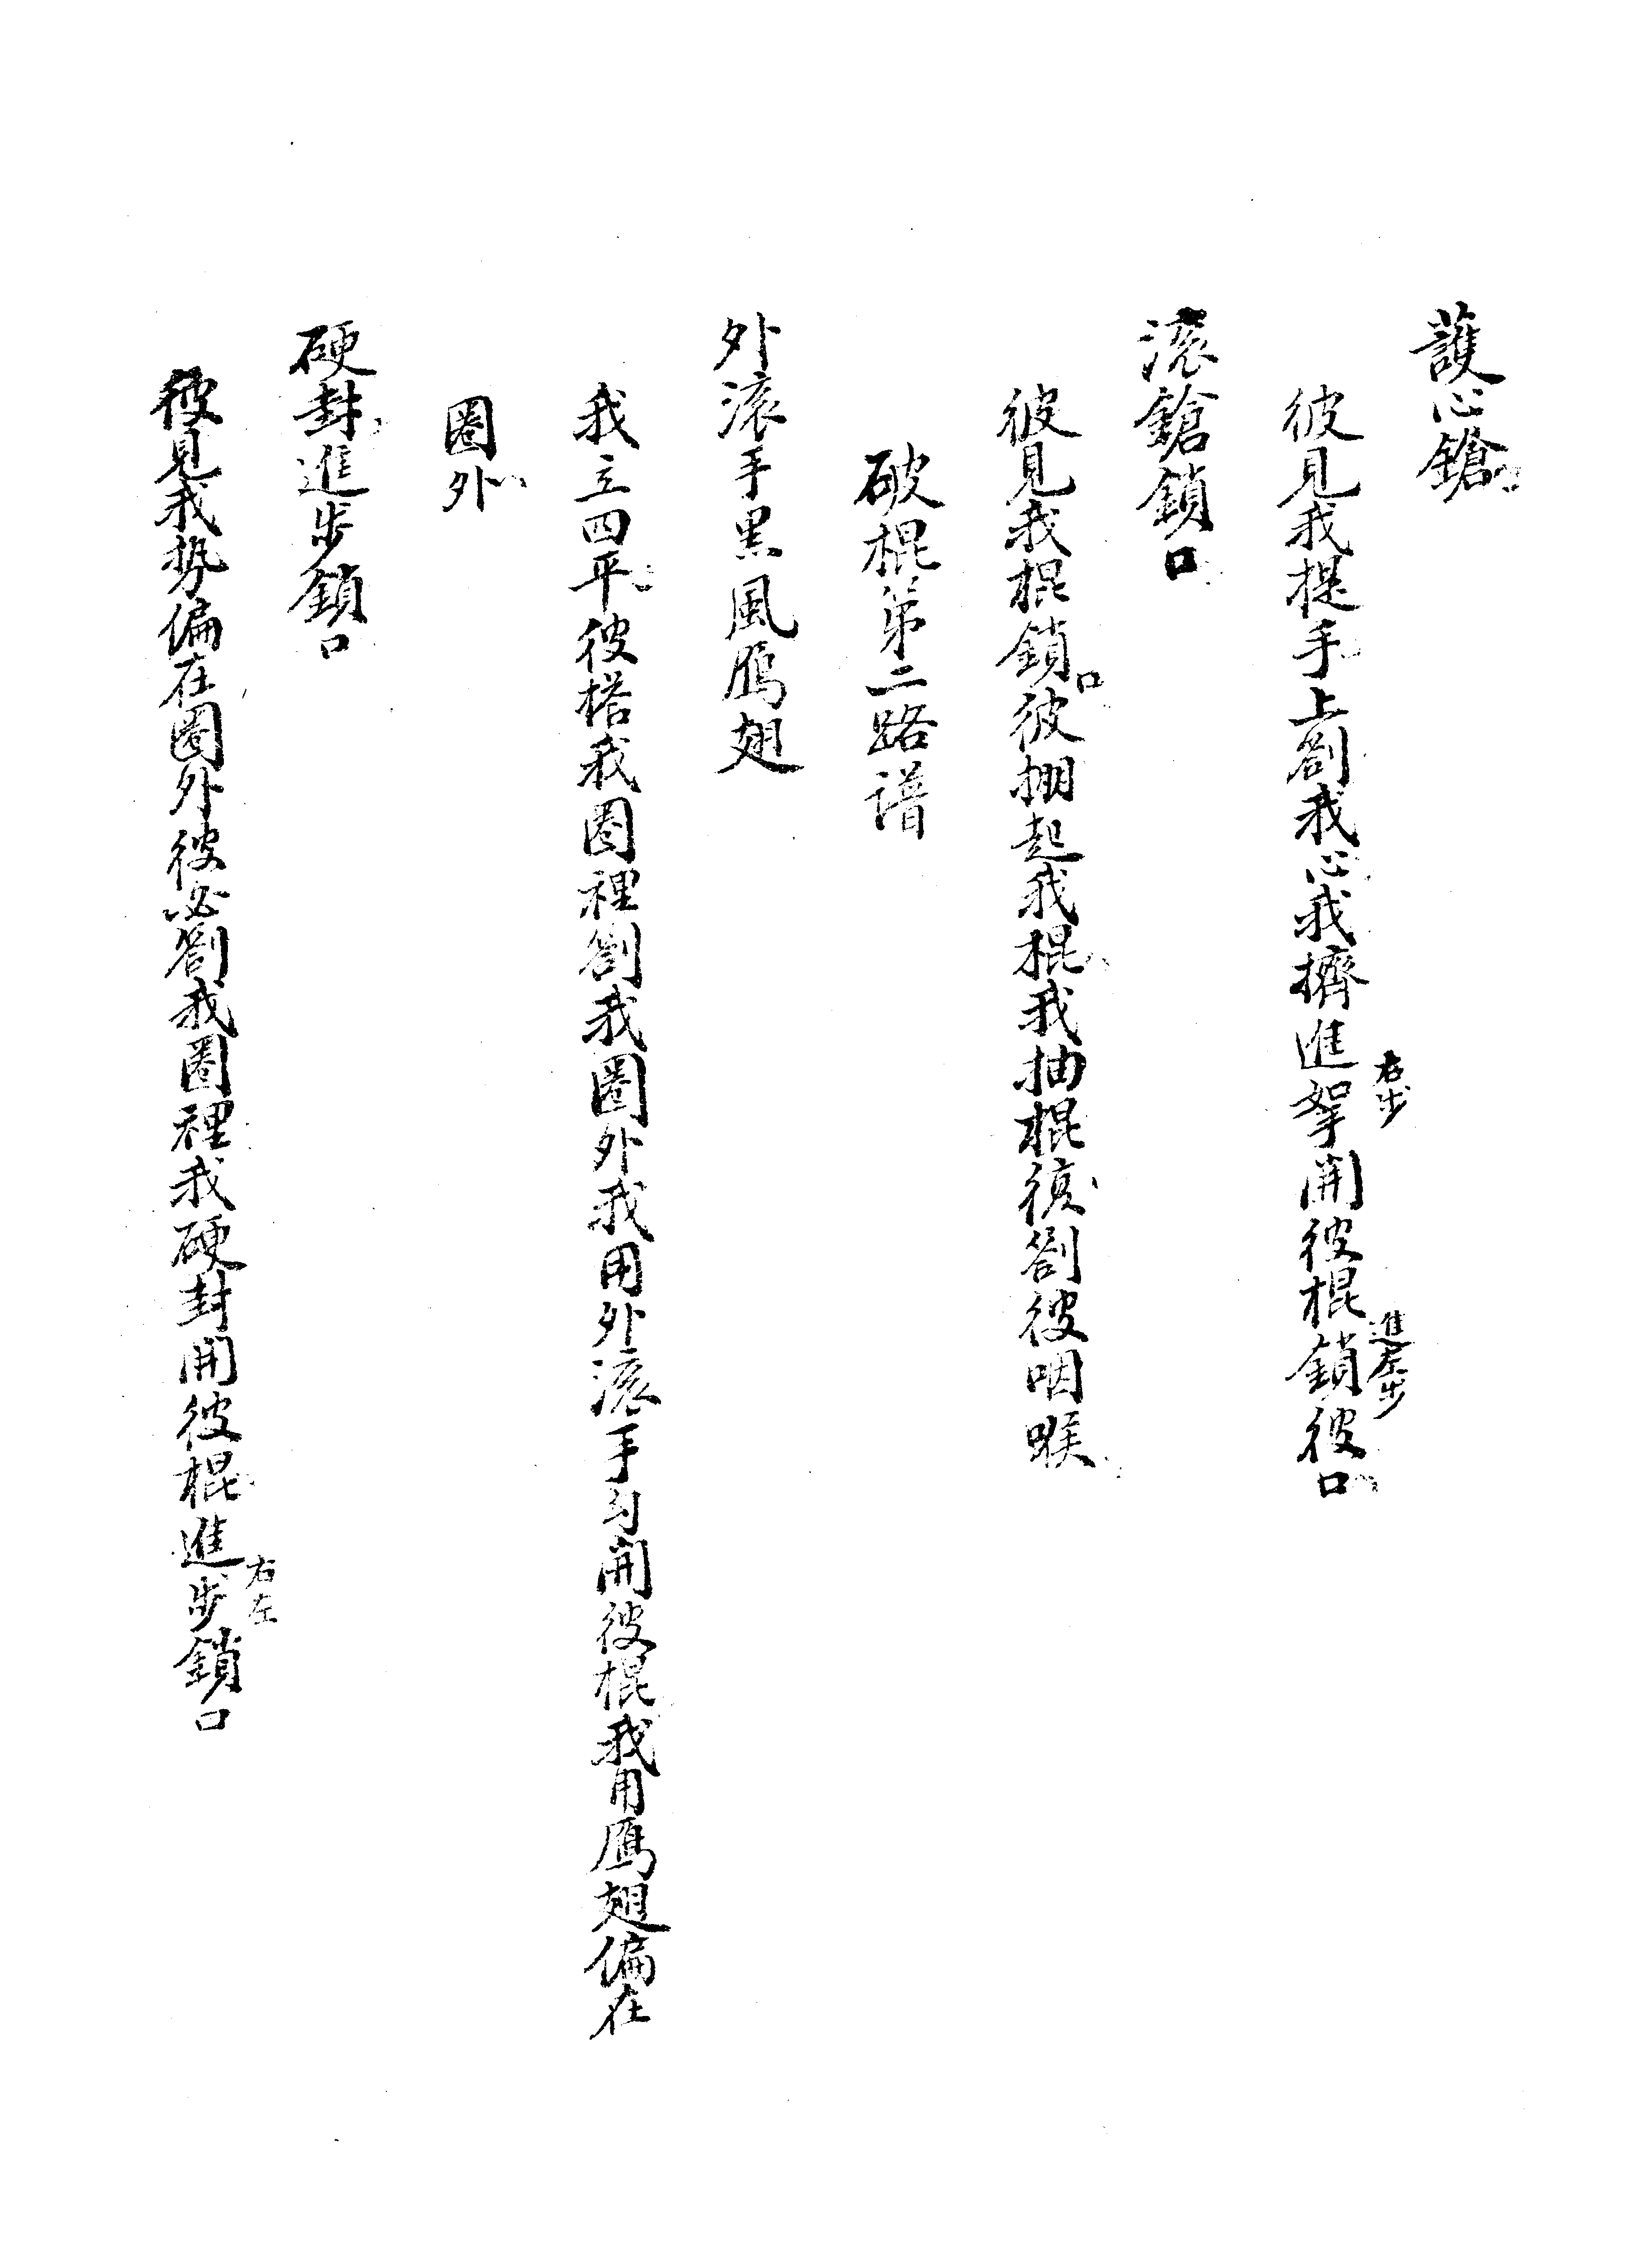 護心鎗
彼見我提手上劄我心我擠進右步拏開彼棍進左步鎖彼口
滾鎗鎖口
彼見我棍鎖口彼掤起我棍我抽棍復劄彼咽喉
破棍第二路譜
外滾手黑風鴈翅
我立四平彼搭我圈裡劄我圈外我用外滾手勾開彼棍我用鴈翅偏在
圈外
硬封進步鎖口
彼見我勢偏在圈外彼必劄我圈裡我硬封開彼棍進右左步鎖口